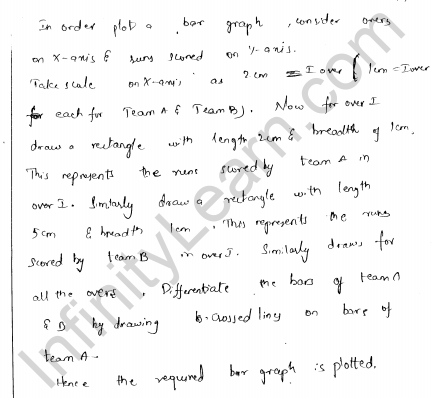 In order plot a bar graph, consider overs
on X-axis & runs scored on Y-axis.
Take scale on X-axis as 2cm = I over (1cm = I over
for each for Team A & Team B). Now for over I
draw a rectangle with length 2cm & breadth of 1cm.
This represents the runs scored by team A in
over I. Similarly draw a rectangle with length
5cm & breadth 1cm. This represents the runs
scored by team B in over I. Similarly draw for
all the overs. Differentiate the bars of team A
& B by drawing crossed lines on bars of
team A.
Hence the required bar graph is plotted.
InfinityLearn.com